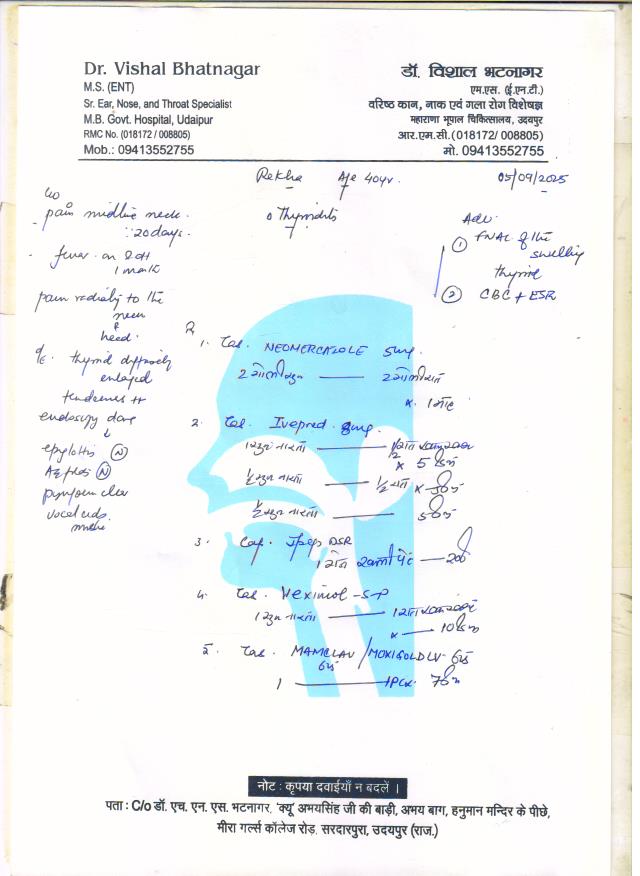 Dr. Vishal Bhatnagar
M.S. (ENT)
Sr. Ear, Nose, and Throat Specialist
M.B. Govt. Hospital, Udaipur
RMC No. (018172 / 008805)
Mob.: 09413552755
डॉ. विशाल भटनागर
एम.एस. (ई.एन.टी.)
वरिष्ठ कान, नाक एवं गला रोग विशेषज्ञ
महाराणा भूपाल चिकित्सालय, उदयपुर
आर.एम.सी. (018172/ 008805)
मो. 09413552755
Rekha Age 40yr. 05/09/2025
c/o
pain midline neck.
20days.
fever on & off
1 month
pain radiating to the
neck
&
head.
o/E. thyroid diffusely
enlarged
tenderness ++
endoscopy done
epiglottis (N)
(N)
clear
vocal cords
Thyroiditis
Adv.
① FNAC of the
swelling
thyroid
② CBC + ESR
R
1. Tab. NEOMERCAZOLE 5mg.
2 गोली सुबह — 2 गोली शाम
x 1 माह
2. Tab. Ivepred 8mg.
1 सुबह नाश्ता —
x 5 दिन
1/2 सुबह नाश्ता — 1/2 शाम x 5 दिन
1/2 सुबह नाश्ता — 5 दिन
3. Cap. DSR
खाली पेट —
4. Tab. -SP
1 सुबह नाश्ता — 1 शाम
x — 10 दिन
5. Tab. MAMCLAV / MOXIGOLD LV 625
625
1 — 7 दिन
नोट : कृपया दवाईयाँ न बदलें ।
पता : C/o डॉ. एच. एन. एस. भटनागर, 'क्यू' अभयसिंह जी की बाड़ी, अभय बाग, हनुमान मन्दिर के पीछे,
मीरा गर्ल्स कॉलेज रोड़, सरदारपुरा, उदयपुर (राज.)